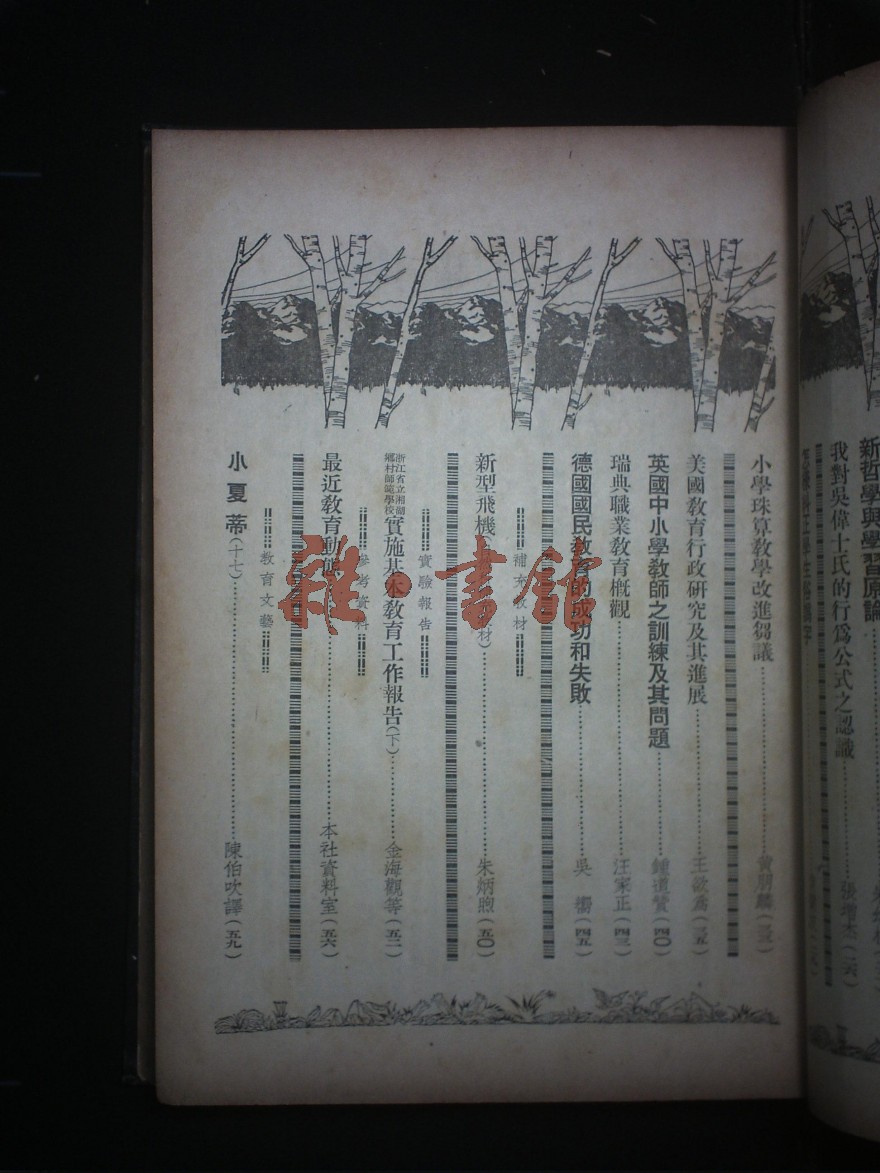 新哲學與學習原論
我對吳偉士氏的行為公式之認識……張增杰(二六)
小學珠算教學改進芻議……黃朋麟
美國教育行政研究及其進展……王敏(三五)
英國中小學教師之訓練及其問題……鍾道贊(四〇)
瑞典職業教育概觀……汪家正(四三)
德國國民教育的成功和失敗……吳(四五)
補充教材
新型飛機 材)……朱炳煦(五〇)
實驗報告
浙江省立湘湖鄉村師範學校實施基本教育工作報告(下)……金海觀等(五二)
參考資料
最近教育動態……本社資料室(五六)
教育文藝
小夏蒂(十七)……陳伯吹譯(五九)
雜·書館